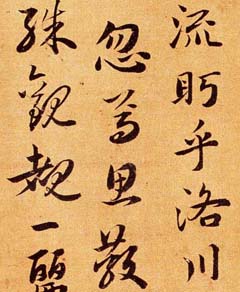 流眄乎洛川
忽焉思散
殊觀覩一麗